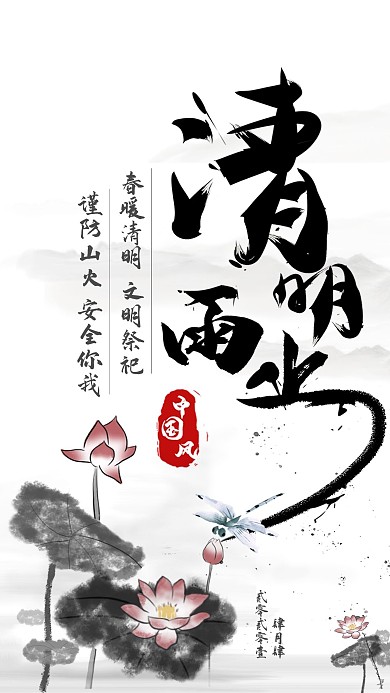 清明
雨止
春暖清明 文明祭祀
谨防山火 安全你我
中国风
肆月肆
贰零贰零壹